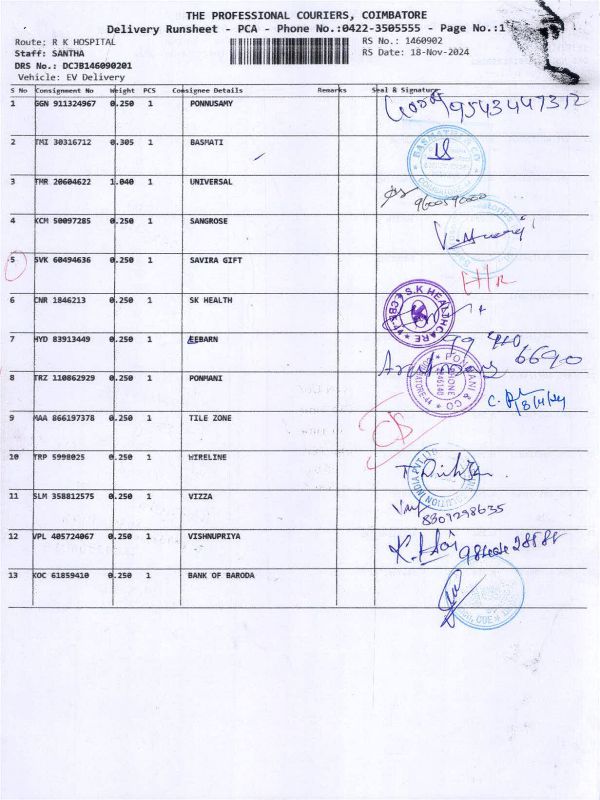 THE PROFESSIONAL COURIERS, COIMBATORE
Delivery Runsheet - PCA - Phone No.:0422-3505555 - Page No.:1
Route: R K HOSPITAL RS No.: 1460902
Staff: SANTHA RS Date: 18-Nov-2024
DRS No.: DCJB146090201
Vehicle: EV Delivery
S No Consignment No Weight PCS Consignee Details Remarks Seal & Signature
1 GGN 911324967 0.250 1 PONNUSAMY 9543447312
2 TMI 30316712 0.305 1 BASMATI
3 TMR 20604622 1.040 1 UNIVERSAL
4 KCM 50097285 0.250 1 SANGROSE
5 SVK 60494636 0.250 1 SAVIRA GIFT
6 CNR 1846213 0.250 1 SK HEALTH
S.K HEALTHCARE
7 HYD 83913449 0.250 1 EEBARN
6690
8 TRZ 110862929 0.250 1 PONMANI
9 MAA 866197378 0.250 1 TILE ZONE
10 TRP 5998025 0.250 1 WIRELINE
11 SLM 358812575 0.250 1 VIZZA
8807298635
12 VPL 405724067 0.250 1 VISHNUPRIYA
13 KOC 61859410 0.250 1 BANK OF BARODA